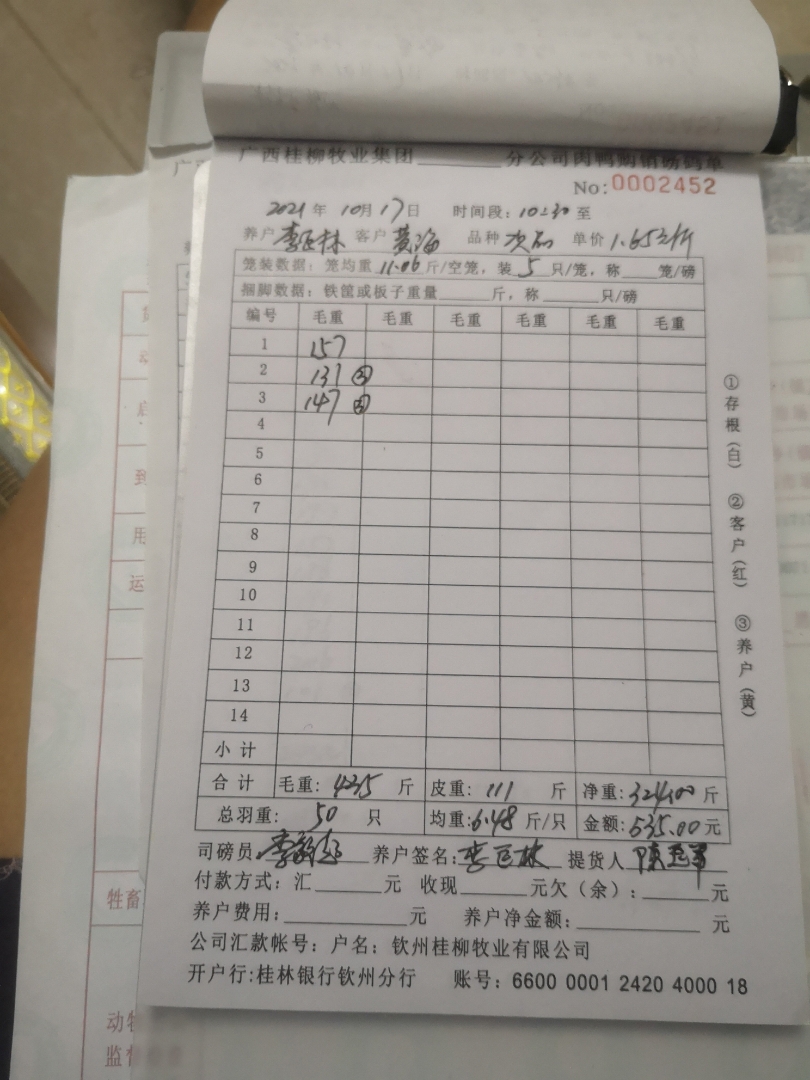 广西桂柳牧业集团______分公司肉鸭购销磅码单
No:0002452
2021年 10月17日 时间段:10:30至
养户李巨林 客户黄海 品种次品 单价1.65元/斤
笼装数据:笼均重11.06斤/空笼,装5只/笼,称____笼/磅
捆脚数据:铁筐或板子重量______斤,称______只/磅
编号 毛重 毛重 毛重 毛重 毛重 毛重
1 157
2 131 ③
3 147 ③
4
5
6
7
8
9
10
11
12
13
14
小计
合计 毛重:435 斤 皮重:111 斤 净重:324.00斤
总羽重:50 只 均重:6.48斤/只 金额:535.00元
司磅员: 养户签名:李巨林 提货人
付款方式:汇______元 收现______元欠(余):______元
养户费用:__________元 养户净金额:__________元
公司汇款帐号:户名:钦州桂柳牧业有限公司
开户行:桂林银行钦州分行 账号:6600 0001 2420 4000 18
①存根(白) ②客户(红) ③养户(黄)
用
运
牲畜
动物
监督